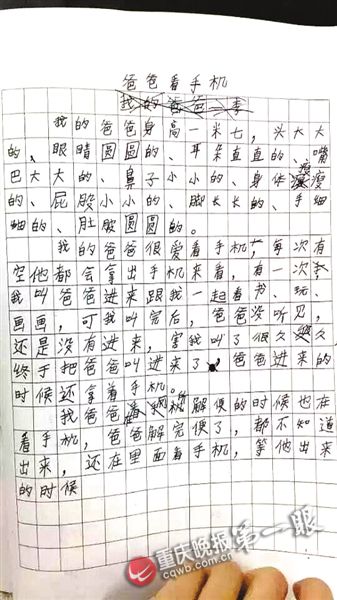 爸爸看手机
我的爸爸身高一米七，头大大
的、眼睛圆圆的、耳朵直直的、嘴
巴大大的、鼻子小小的、身体瘦瘦
的、屁股小小的、脚长长的、手细
细的、肚股圆圆的。
我的爸爸很爱看手机，每次有
空他都会拿出手机来看，有一次，
我叫爸爸进来跟我一起看书、玩、
画画，可我叫完后，爸爸没听见，
还是没有进来，害我叫了很久久
终于把爸爸叫进来了。爸爸进来的
时候还拿着手机。
我爸爸解便的时候也在
看手机，爸爸解完便了，都不知道
出来，还在里面看手机，等他出来
的时候
重庆晚报第一眼
cqwb.com.cn